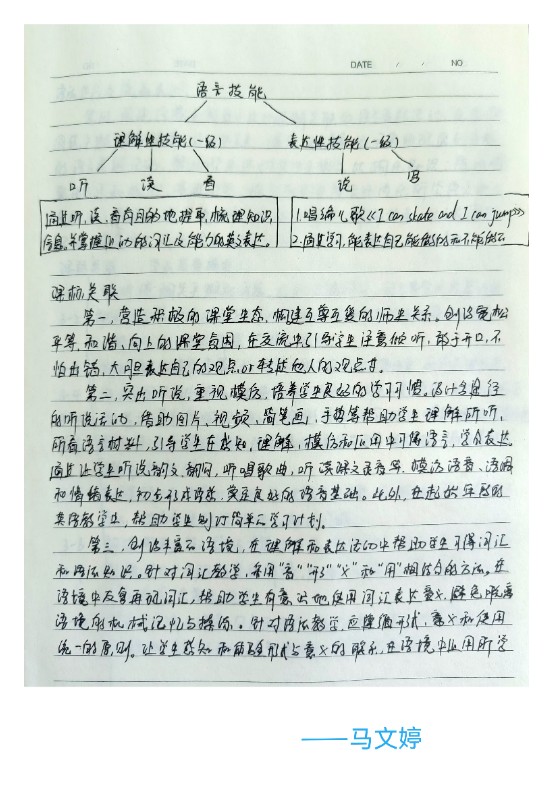 DATE / / NO
语言技能
理解性技能(一级) 表达性技能(一级)
听 读 看 说 写
通过听、读、看有目的地提取、梳理知识
信息,并掌握 的词汇及能力的英文表达。
1.唱 歌《I can skate and I can jump》
2.通过学习,能表达自己能做的和不能做的
课标关联
第一,营造积极的课堂生态,构建互尊互爱的师生关系。创设宽松
平等、和谐、向上的课堂氛围,在交流中引导学生注意倾听,敢于开口,不
怕出错,大胆表达自己的观点or转述他人的观点等。
第二,突出听说,重视模仿,培养学生良好的学习习惯。设计多途径
的听说活动,借助图片、视频、简笔画、手势等帮助学生理解所听、
所看语言材料,引导学生在感知、理解、模仿和应用中习得语言,学会表达。
通过让学生听说韵文、 ,听唱歌曲,听读 ,模仿语音、语调
和情绪表达,初步形成语感,奠定良好的语音基础。此外,在起始年段的
英语教学中,帮助学生制订简单的学习计划。
第三,创设丰富的语境,在理解和表达活动中帮助学生习得词汇
和语法知识。针对词汇教学,采用“音”“形”“义”和“用”相结合的方法。在
语境中反复再现词汇,帮助学生有意识地使用词汇表达意义,避免脱离
语境的机械记忆与操练。针对语法教学,应遵循形式、意义和使用
统一的原则。让学生感知和 形式与意义的联系,在语境中运用所学
——马文婷